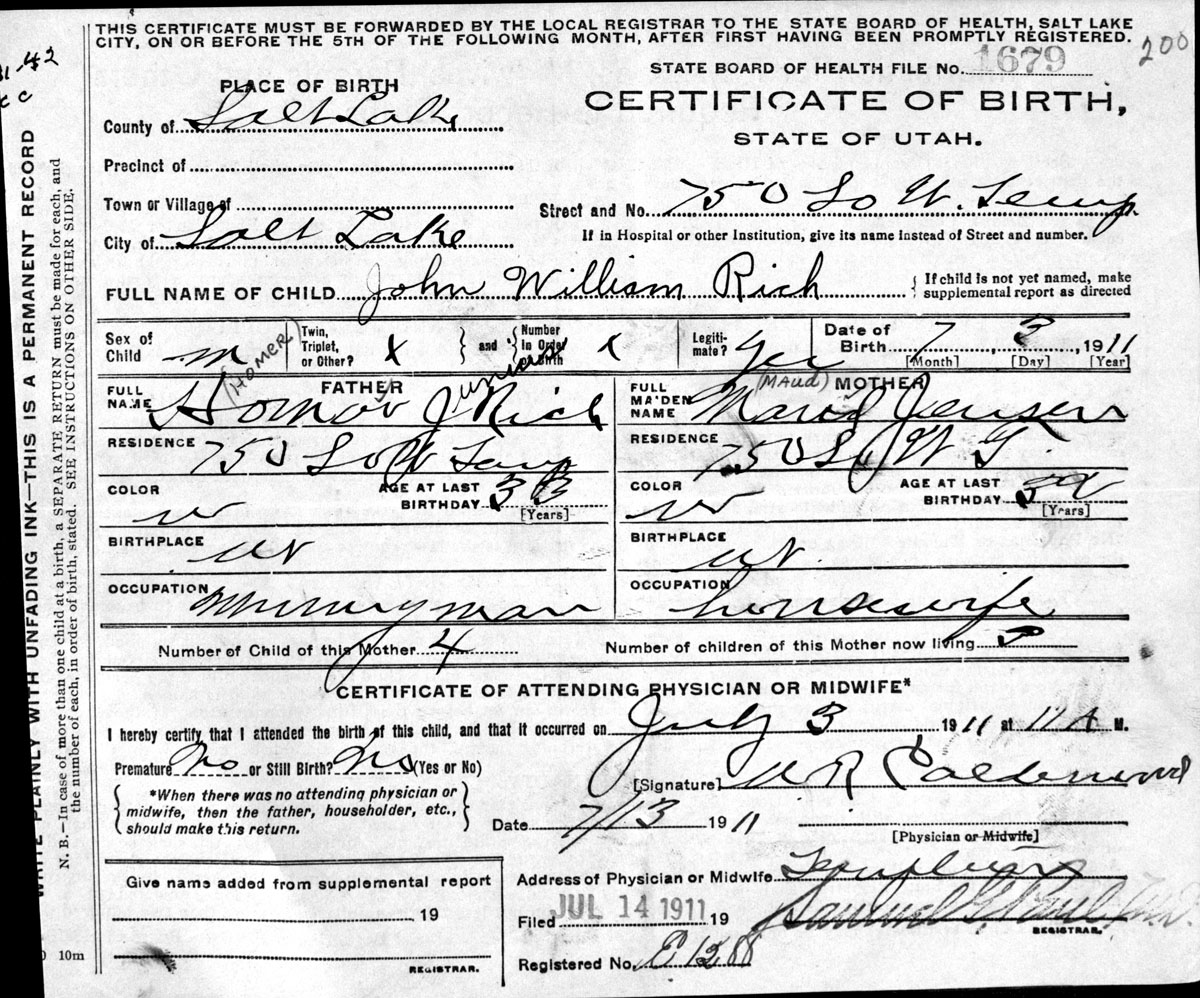 THIS CERTIFICATE MUST BE FORWARDED BY THE LOCAL REGISTRAR TO THE STATE BOARD OF HEALTH, SALT LAKE
CITY, ON OR BEFORE THE 5TH OF THE FOLLOWING MONTH, AFTER FIRST HAVING BEEN PROMPTLY REGISTERED.
200
STATE BOARD OF HEALTH FILE No. 1679
PLACE OF BIRTH
CERTIFICATE OF BIRTH,
STATE OF UTAH.
County of Salt Lake
Precinct of
Town or Village of
Street and No. 750 So W. Temp.
City of Salt Lake
If in Hospital or other Institution, give its name instead of Street and number.
FULL NAME OF CHILD John William Rich
{ If child is not yet named, make supplemental report as directed
Sex of Child m
Twin, Triplet, or Other? x } and { Number In Order of Birth x
Legiti-mate? yes
Date of Birth 7, 3, 1911
[Month] [Day] [Year]
FATHER
FULL NAME (HOMER) J Junius Rich
RESIDENCE 750 So W Temp
COLOR w
AGE AT LAST BIRTHDAY 33 [Years]
BIRTHPLACE ut
OCCUPATION
MOTHER
FULL MAIDEN NAME (MAUD) Jensen
RESIDENCE 750 So W T.
COLOR w
AGE AT LAST BIRTHDAY [Years]
BIRTHPLACE ut.
OCCUPATION housewife
Number of Child of this Mother 4
Number of children of this Mother now living
CERTIFICATE OF ATTENDING PHYSICIAN OR MIDWIFE*
I hereby certify that I attended the birth of this child, and that it occurred on July 3 1911 at A. M.
Premature No or Still Birth? No (Yes or No)
[Signature] Calderwood
{ *When there was no attending physician or midwife, then the father, householder, etc., should make this return. }
Date 7/13 1911
[Physician or Midwife]
Address of Physician or Midwife Templeton
Give name added from supplemental report
19
REGISTRAR.
Filed JUL 14 1911 19
Samuel G. Paul
REGISTRAR.
Registered No. E 1288
10m
WRITE PLAINLY WITH UNFADING INK—THIS IS A PERMANENT RECORD
N. B.—In case of more than one child at a birth, a SEPARATE RETURN must be made for each, and
the number of each, in order of birth, stated. SEE INSTRUCTIONS ON OTHER SIDE.